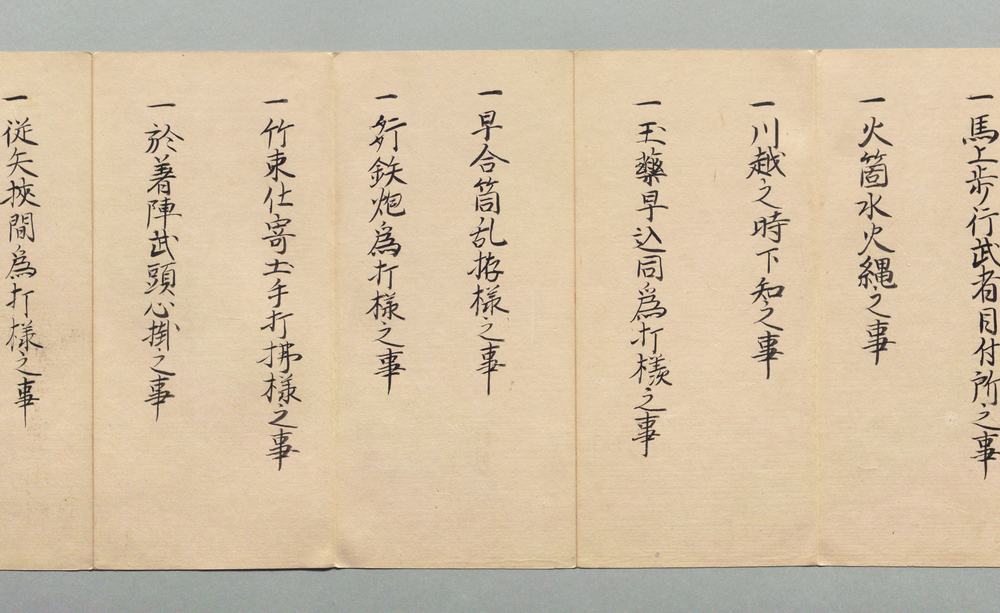 一馬上歩行武者目付所之事
一火箇水火縄之事
一川越之時下知之事
一玉藥早込同爲打様之事
一早合筒乱捺様之事
一鉄炮爲打様之事
一竹束仕寄土手打拂様之事
一於着陣武頭心掛之事
一従矢挾間爲打様之事